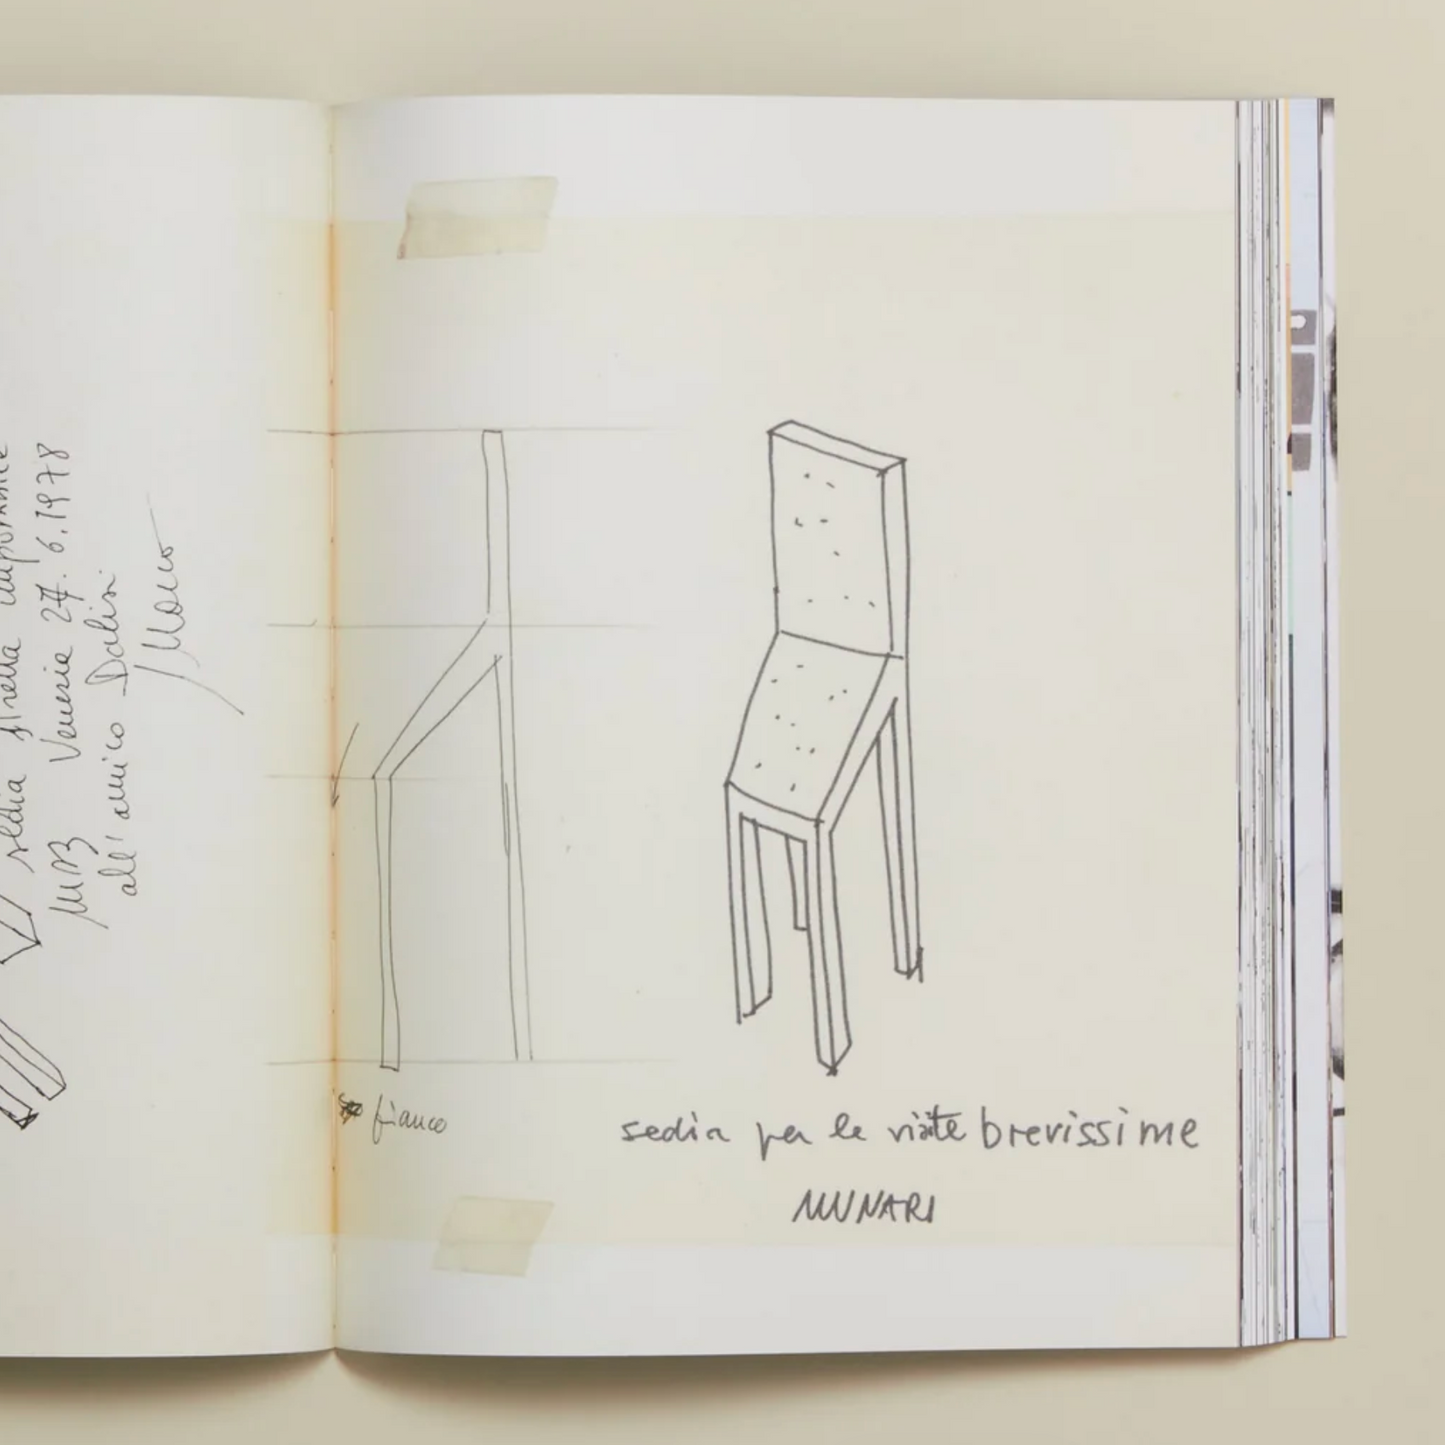 sedia stretta
MB Venezia 27.6.1978
all'amico Dalisi
fianco
sedia per le visite brevissime
MUNARI